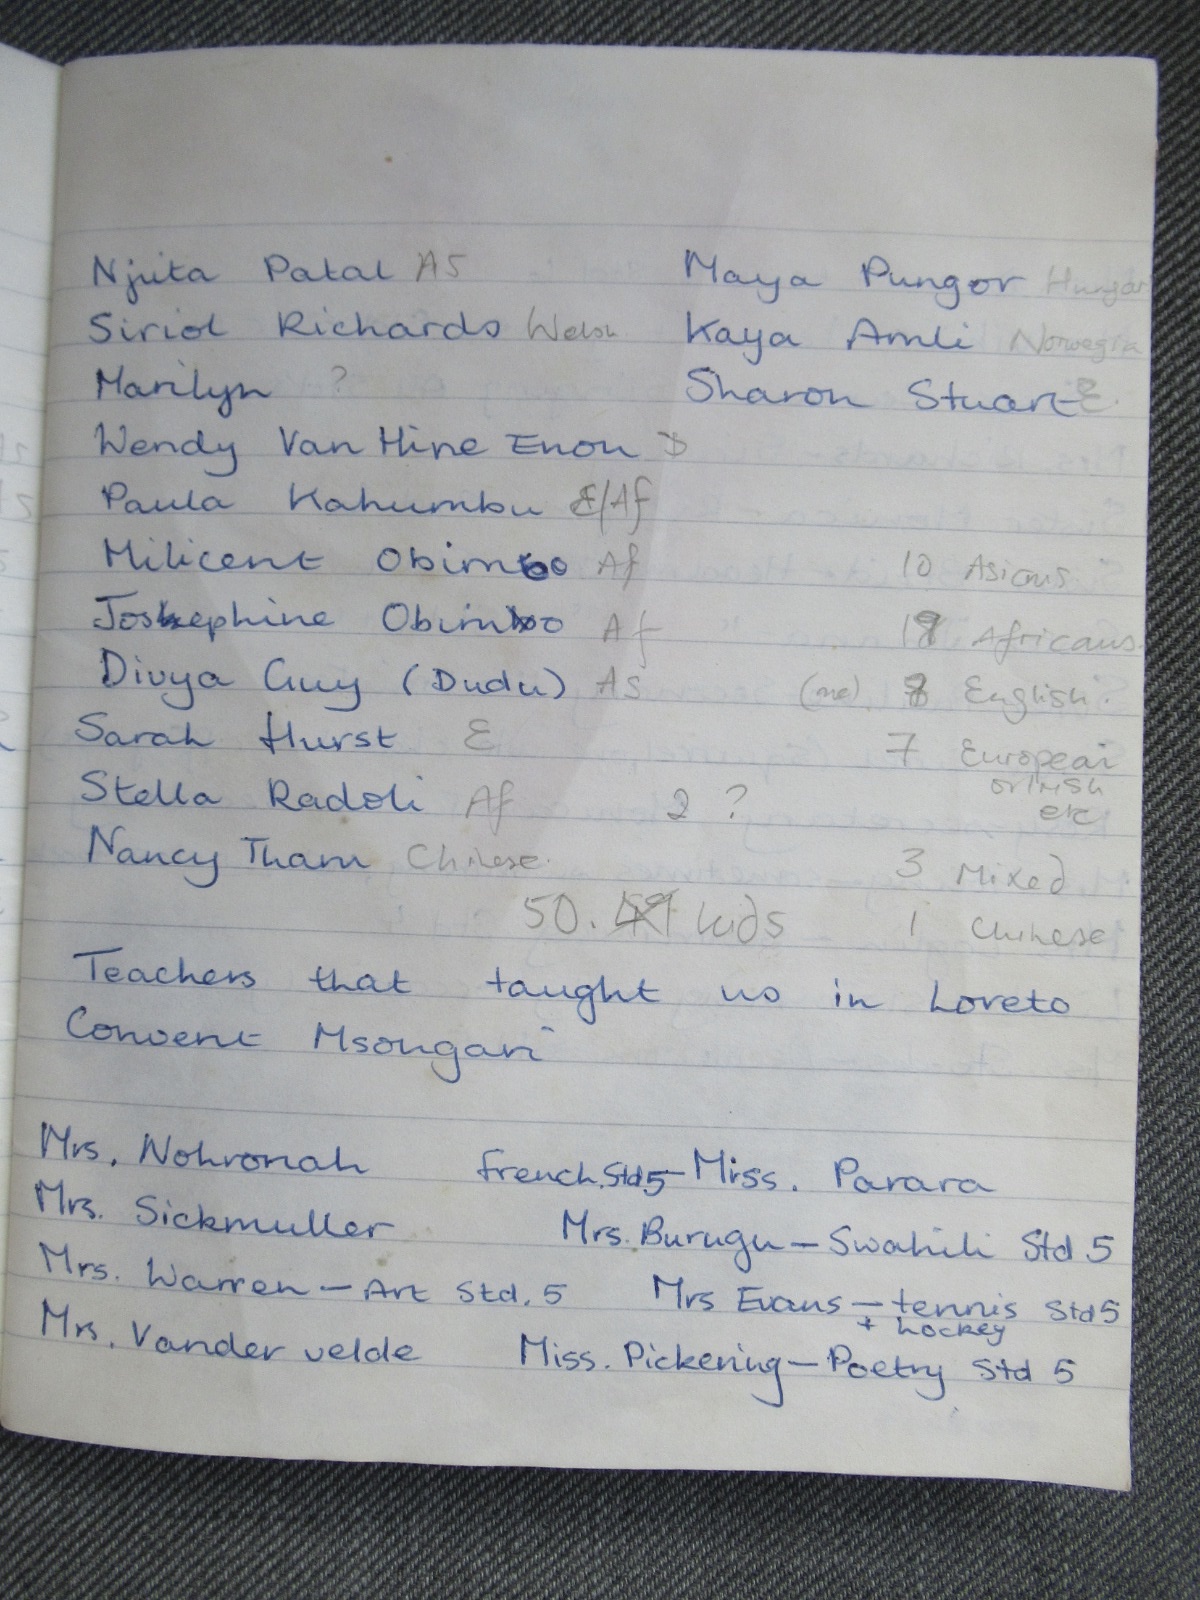 Njuta Patal As Maya Pungor Hungar
Siriol Richards Welsh Kaya Amli Norwegia
Marilyn ? Sharon Stuart E.
Wendy Van Hine Enon D
Paula Kahumbu E/Af
Milicent Obimbo Af 10 Asians
Josephine Obimbo Af Africans.
Divya Guy (Dudu) As (me) 8 English.
Sarah Hurst E 7 European
or Irish
Stella Radoli Af 2 ? etc
Nancy Tham Chinese. 3 Mixed
50. 49 kids 1 Chinese
Teachers that taught us in Loreto
Convent Msongari
Mrs. Nohronah French. Std 5 - Miss. Parara
Mrs. Sickmuller Mrs. Burugu - Swahili Std 5
Mrs. Warren - Art Std. 5 Mrs Evans - tennis Std 5
+ hockey
Mrs. Vander velde Miss. Pickering - Poetry Std 5